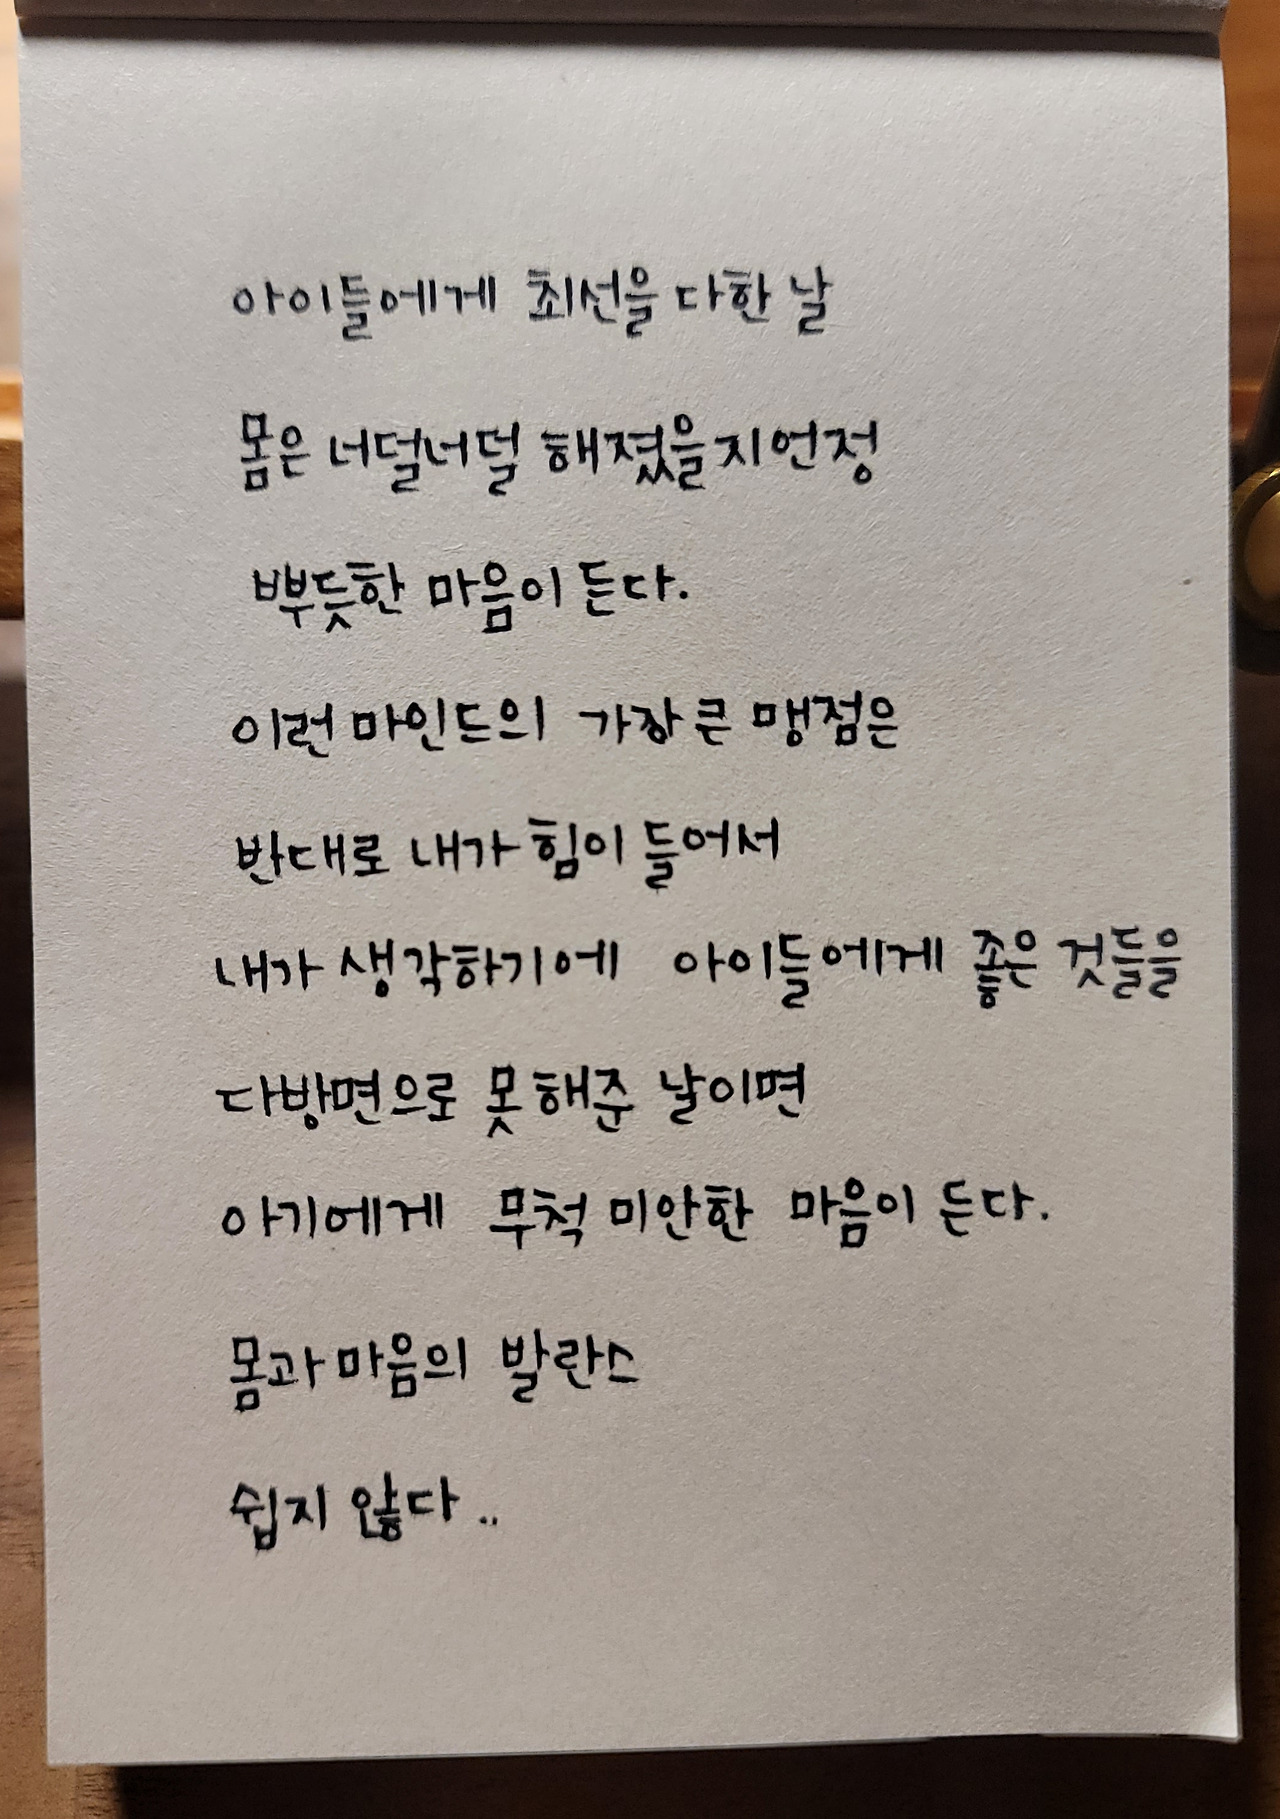 아이들에게 최선을 다한 날
몸은 너덜너덜 해졌을지언정
뿌듯한 마음이 든다.
이런 마인드의 가장 큰 맹점은
반대로 내가 힘이 들어서
내가 생각하기에 아이들에게 좋은 것들을
다방면으로 못 해준 날이면
아기에게 무척 미안한 마음이 든다.
몸과 마음의 발란스
쉽지 않다..